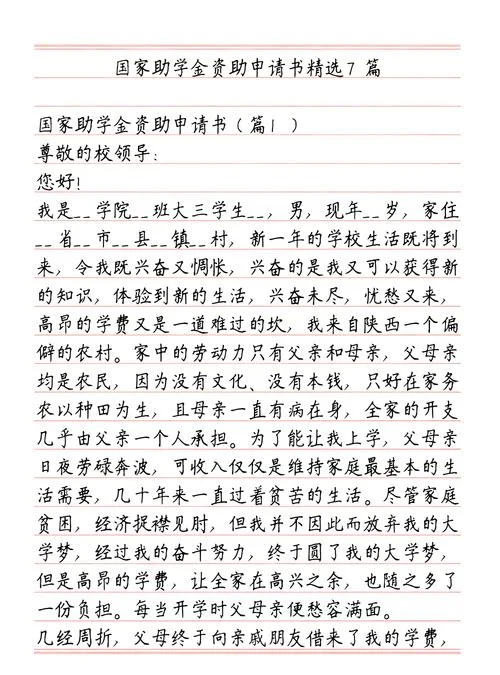 国家助学金资助申请书精选7 篇
国家助学金资助申请书(篇1 )
尊敬的校领导:
您好!
我是__学院__班大三学生__,男,现年__岁,家住
__省__市__县__镇__村,新一年的学校生活既将到
来,令我既兴奋又惆怅,兴奋的是我又可以获得新
的知识,体验到新的生活,兴奋未尽,忧愁又来,
高昂的学费又是一道难过的坎,我来自陕西一个偏
僻的农村。家中的劳动力只有父亲和母亲,父母亲
均是农民,因为没有文化、没有本钱,只好在家务
农以种田为生,且母亲一直有病在身,全家的开支
几乎由父亲一个人承担。为了能让我上学,父母亲
日夜劳碌奔波,可收入仅仅是维持家庭最基本的生
活需要,几十年来一直过着贫苦的生活。尽管家庭
贫困,经济捉襟见肘,但我并不因此而放弃我的大
学梦,经过我的奋斗努力,终于圆了我的大学梦,
但是高昂的学费,让全家在高兴之余,也随之多了
一份负担。每当开学时父母亲便愁容满面。
几经周折,父母终于向亲戚朋友借来了我的学费,